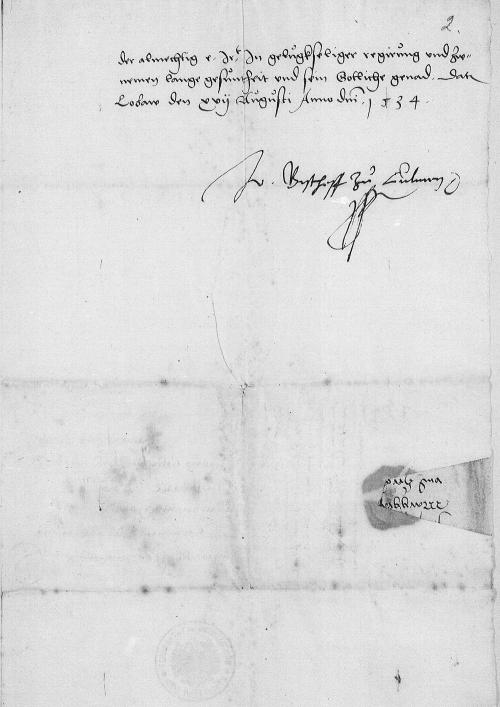 2.
der almechtig e. Jr. In geluckseliger regirung und zw-
nemen lange gesuntheit und sein Gotliche genad. Dat
Lobaw den xxvij Augusti Anno dni. 1534.
Jo. Bischoff zu Culmen